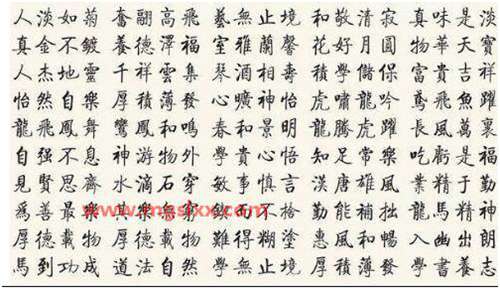 人淡如菊 奮翮高飛 藝無止境 和敬清寂 真味是淡
真金不鍍 養德澤福 室雅蘭馨 花好月圓 物華天寶
人杰地靈 千祥雲集 琴酒相壽 積學儲保 富貴吉祥
怡然自樂 厚積薄發 心曠神怡 虎嘯龍吟 鳶飛魚躍
龍飛鳳舞 鸞鳳和鳴 春和景明 龍騰虎躍 長風萬裏
自强不息 神游物外 學貴心悟 知足常樂 吃虧是福
見賢思齊 水滴石穿 敏事慎言 漢唐雄風 業精于勤
爲善最樂 其樂 而不 勤能補拙 馬精神
厚德載物 厚德載物 難得糊塗 惠風和暢 入幽出朗
馬到功成 道法自然 學無止境 厚積薄發 學書養志